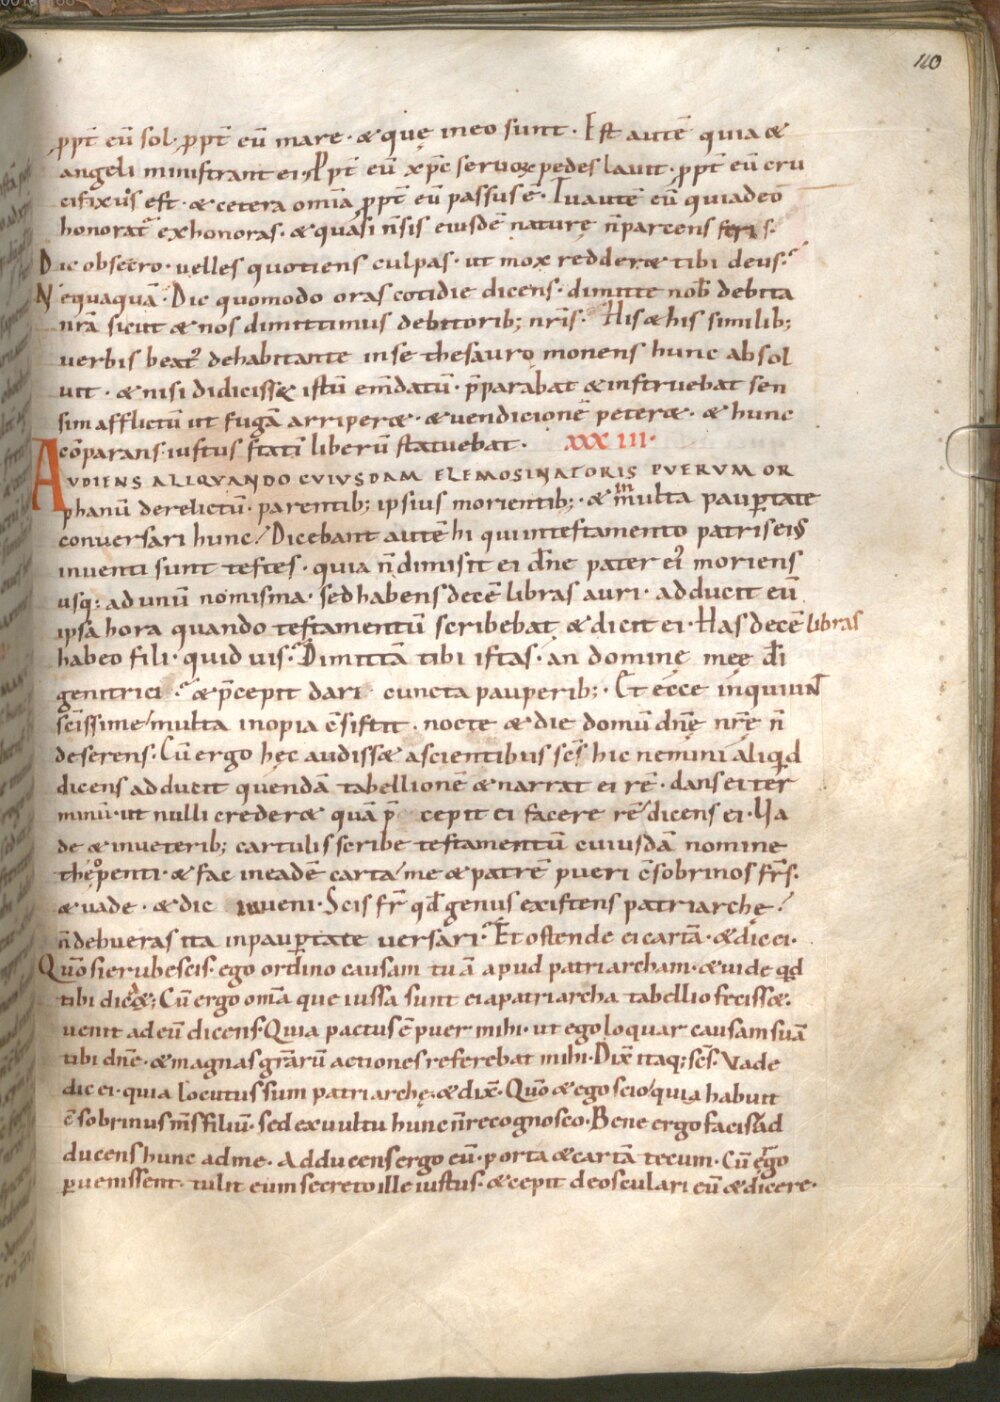 110
ꝓpt̄ eū sol · ꝓpt̄ eū mare · & quę ineo sunt · Est autē quia &
angeli ministrant ei · Ꝓpt̄ eū xp̄c seruoꝝ pedes lauit · ꝓpt̄ eū cru
cifixus est · & cetera om̄ia ꝓpt̄ eū passus ē · Tu autē eū quia deo
honorat̃ exhonoras · & quasi n̄ sis eiusdē naturę n̄ parcens feris ·
Dic obsecro · uelles quotiens culpas · ut mox redder& tibi deus ·
Nequaquā · Dic quomodo oras cotidie dicens · dimitte nob̄ debita
nrā sicut & nos dimittimus debitorib; nrīs · His & his similib;
uerbis beat᾿ dehabitante inse thesauro monens hunc absol
uit · & nisi didiciss& istū em̄datū · p̄parabat & instruebat sen
sim afflictū ut fugā arriper& · & uendicionē peter& · & hunc
cōparans · iustus statī liberū statuebat · XXXIII ·
AUDIENS ALIQUANDO CUIUSDAM ELEMOSINATORIS PUERUM OR
phanū derelictū · parentib; ipsius morientib; · & in multa pauꝑtate
conuersari hunc / Dicebant autē hi qui intestamento patris eiꝰ
inuenti sunt testes · quia n̄ dimisit ei dn̄e pater ei᾿ moriens
usq; ad unū nomisma · sed habens decē libras auri · adducit eū
ipsa hora quando testamentū scribebat & dicit ei · Has decē libras
habeo fili · quid uis · Dimittā tibi istas · an dominę meę dī
genitrici · & p̄cepit dari cuncta pauperib; · Et ecce inquiunt
scīssime / multa inopia c̄sistit · nocte & die domū dn̄ę nr̄ę n̄
deserens · Cū ergo hęc audiss& a scientibus scs̄ hic nemini aliqd
dicens adducit quendā tabellionē & narrat ei rē · dans ei ter
minū · ut nulli creder& quā p̄ cepit ei facere rē / dicens ei · Ua
de & inueterib; cartulis scribe testamentū cuiusdā nomine
theopenti · & fac in eadē carta / me & patrē pueri c̄sobrinos frs̄ ·
& uade · & dic iuueni · Scis fr̄ qd̄ genus existens patriarchę ?
n̄ debueras ita inpauꝑtate uersari · Et ostende ei cartā · & dic ei ·
Quō si erubescis · ego ordino causam tuā apud patriarcham · & uide qd
tibi dic& ; Cū ergo om̄a que iussa sunt ei a patriarcha tabellio feciss& ·
uenit ad eū dicens · Quia pactus ē puer mihi · ut ego loquar causam suā
tibi dn̄e · & magnas gr̄arū actiones referebat mihi · Dix̄ itaq; scs̄ · Vade
dic ei · quia locutus sum patriarchę · & dix̄ · Quō & ego scio / quia habuit
c̄sobrinus m̄s filiū · sed ex uultu hunc n̄ recognosco · Bene ergo facis ad
ducens hunc ad me · Adducens ergo eū · porta & cartā tecum · Cū ergo
ꝑuenissent · tulit eum secreto ille iustus · & cepit deosculari eū & dicere ·